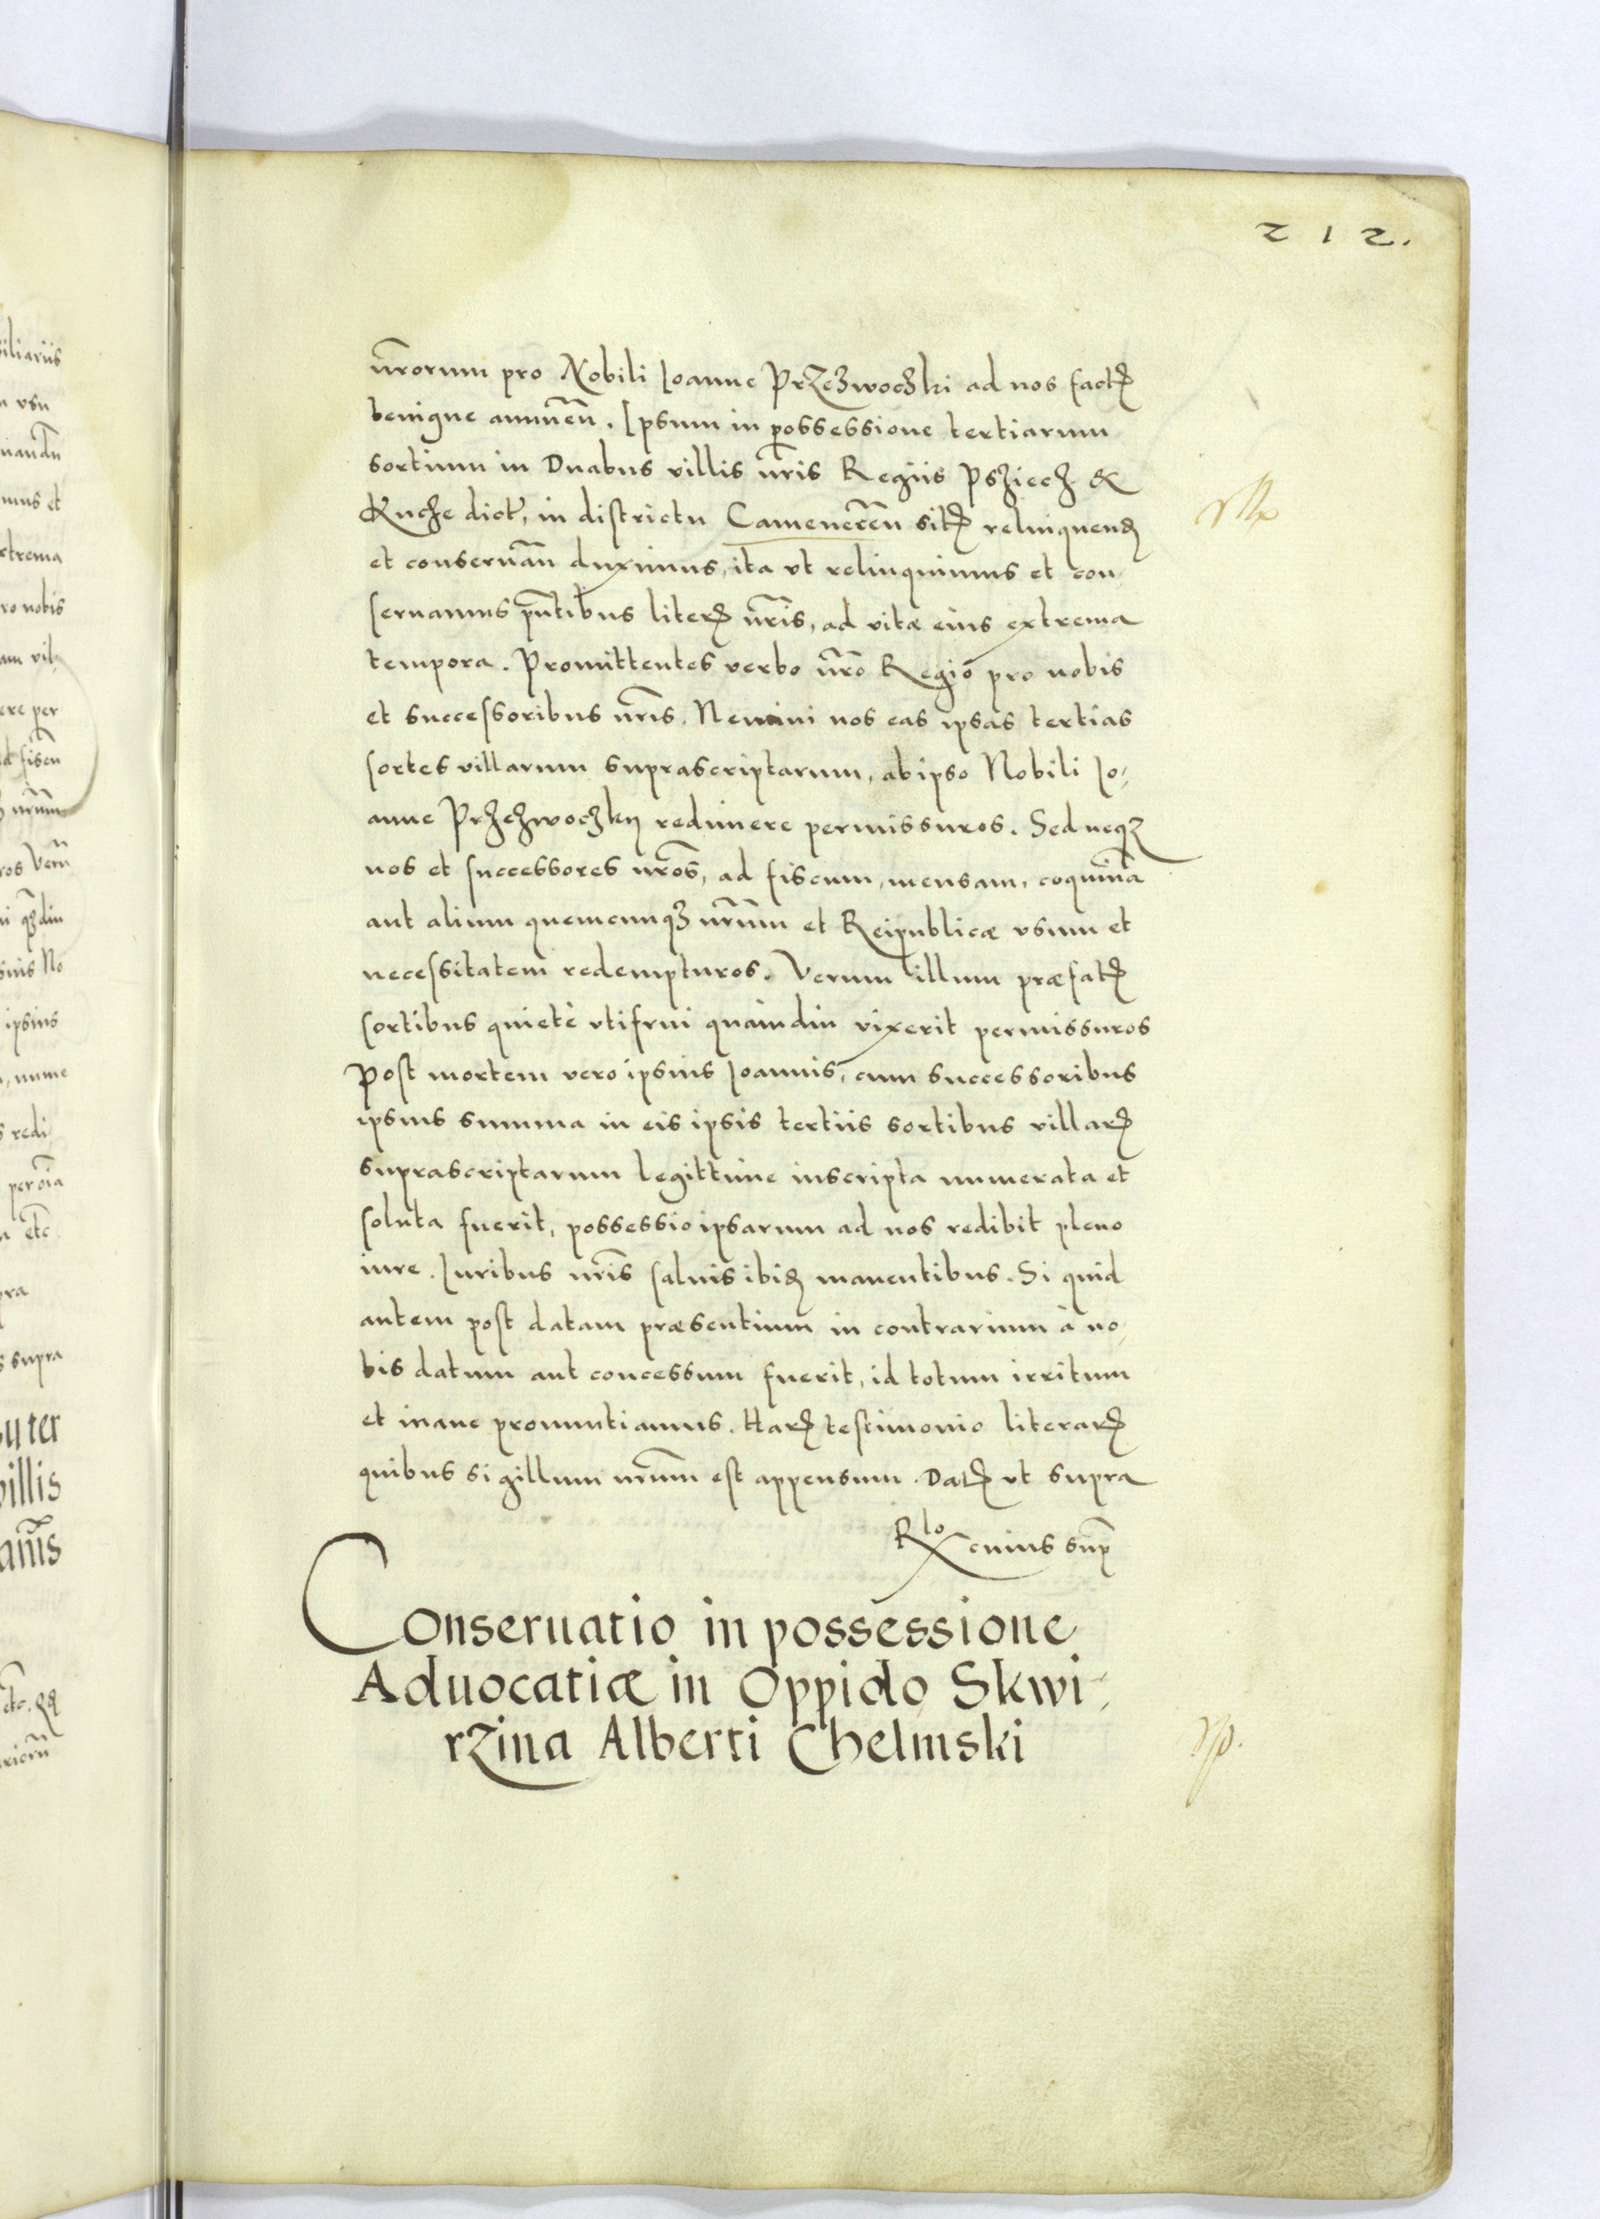 212.
nr̃orum pro Nobili Ioanne Przezwoczki ad nos factꝭ
benigne annuen̄. Ipsum in possessione tertiarum
sortium in Duabus villis nr̃is Regiis Psziecz &
Kucze dict̃, in districtu Camenecen̄ sitꝭ relinquenḍ
et conseruan̄ duximus, ita vt relinquimus et con-
seruamus pñtibus literꝭ nr̃is, ad vitæ eius extrema
tempora. Promittentes verbo nr̃o Regio pro nobis
et successoribus nr̃is. Nemini nos eas ipsas tertias
sortes villarum suprascriptarum, ab ipso Nobili Io-
anne Przezwoczky redimere permissuros. Sed neqꝫ
nos et successores nr̃os, ad fiscum, mensam, coquinā
aut alium quemcunqꝫ nr̃um et Reipublicæ vsum et
necessitatem redempturos. Verum illum præfatꝭ
sortibus quietè vtifrui quàmdiu vixerit permissuros
Post mortem vero ipsius Ioannis, cum successoribus
ipsius summa in eis ipsis tertiis sortibus villarꝭ
suprascriptarum legittime inscripta numerata et
soluta fuerit, possessio ipsarum ad nos redibit pleno
iure. Iuribus nr̃is saluis ibiḍ manentibus. Si quid
autem post datam præsentium in contrarium à no-
bis datum aut concessum fuerit, id totum irritum
et inane pronuntiamus. Harꝭ testimonio literarꝭ
quibus sigillum nr̃um est appensum. Datꝭ vt supra
Rlo cuius sup̄
Conseruatio in possessione
Aduocatiæ in Oppido Skwi-
rzina Alberti Chelmski